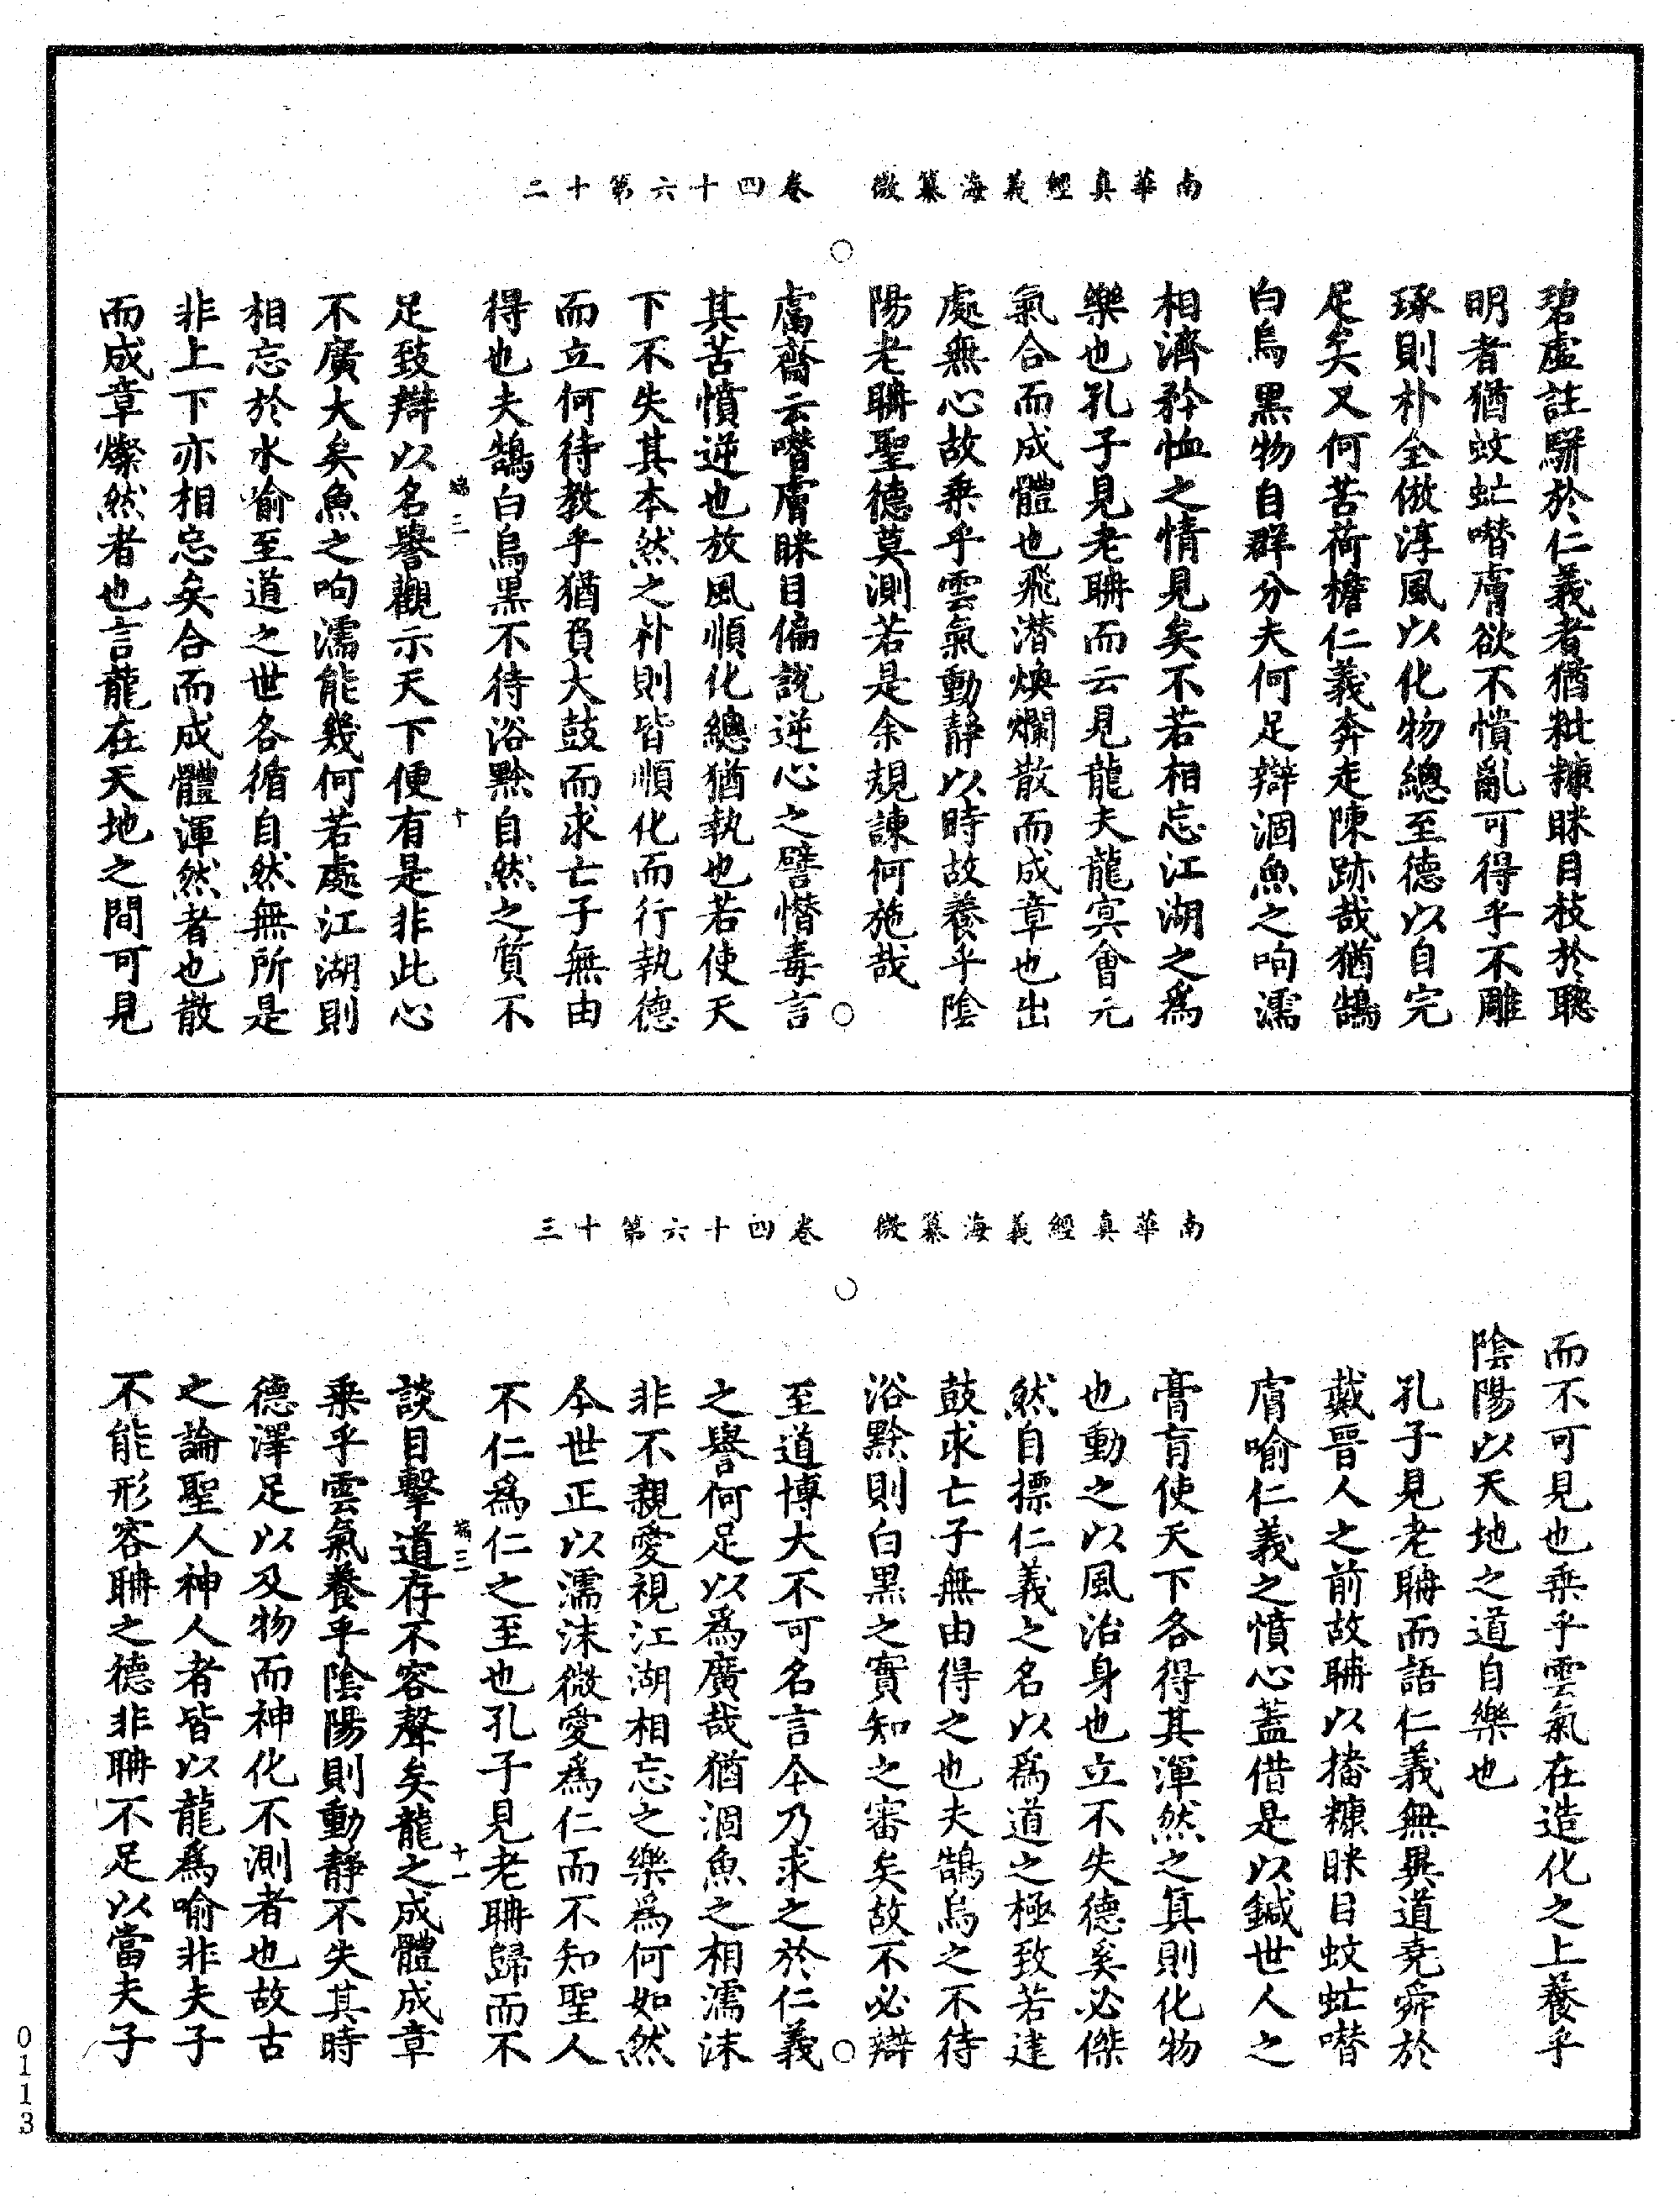 南華真經義海纂微　卷四十六第十二
碧虛註駢於仁義者猶粃糠眯目枝於聰
明者猶蚊虻噆膚欲不憒亂可得乎不雕
琢則朴全倣淳風以化物總至德以自完
足矣又何苦荷檐仁義奔走陳跡哉猶鵠
白烏黑物自群分夫何足辯涸魚之呴濡
相濟矜恤之情見矣不若相忘江湖之爲
樂也孔子見老聃而云見龍夫龍寘會元
氣合而成體也飛潜煥爛散而成章也出
處無心故乗乎雲氣動靜以時故養乎陰
陽老聃聖德莫測若是余規諫何施哉
鬳齋云噆膚眯目偏說逆心之譬憯毒言
其苦憤逆也放風順化總猶執也若使天
下不失其本然之朴則皆順化而行執德
而立何待教乎猶負大鼓而求亡子無由
得也夫鵠白烏黑不待浴黔自然之質不
足致辯以名譽觀示天下便有是非此心
端三
十
不廣大矣魚之呴濡能幾何若處江湖則
相忘於水喻至道之世各循自然無所是
非上下亦相忘矣合而成體渾然者也散
而成章燦然者也言龍在天地之間可見
南華真經義海纂微　卷四十六第十三
而不可見也乗乎雲氣在造化之上養乎
陰陽以天地之道自樂也
孔子見老聃而語仁義無異道堯舜於
戴晉人之前故聃以播糠眯目蚊虻噆
膚喻仁義之憤心蓋借是以鍼世人之
膏肓使天下各得其渾然之真則化物
也動之以風治身也立不失德奚必傑
然自摽仁義之名以爲道之極致若建
鼓求亡子無由得之也夫鵠烏之不待
浴黔則白黑之實知之審矣故不必辯
至道博大不可名言今乃求之於仁義
之譽何足以爲廣哉猶涸魚之相濡沫
非不親愛視江湖相忘之樂爲何如然
今世正以濡沫微愛爲仁而不知聖人
不仁爲仁之至也孔子見老聃歸而不
談目擊道存不容聲矣龍之成體成章
端三
十一
乗乎雲氣養乎陰陽則動靜不失其時
德澤足以及物而神化不測者也故古
之論聖人神人者皆以龍爲喻非夫子
不能形容聃之德非聃不足以當夫子
0113